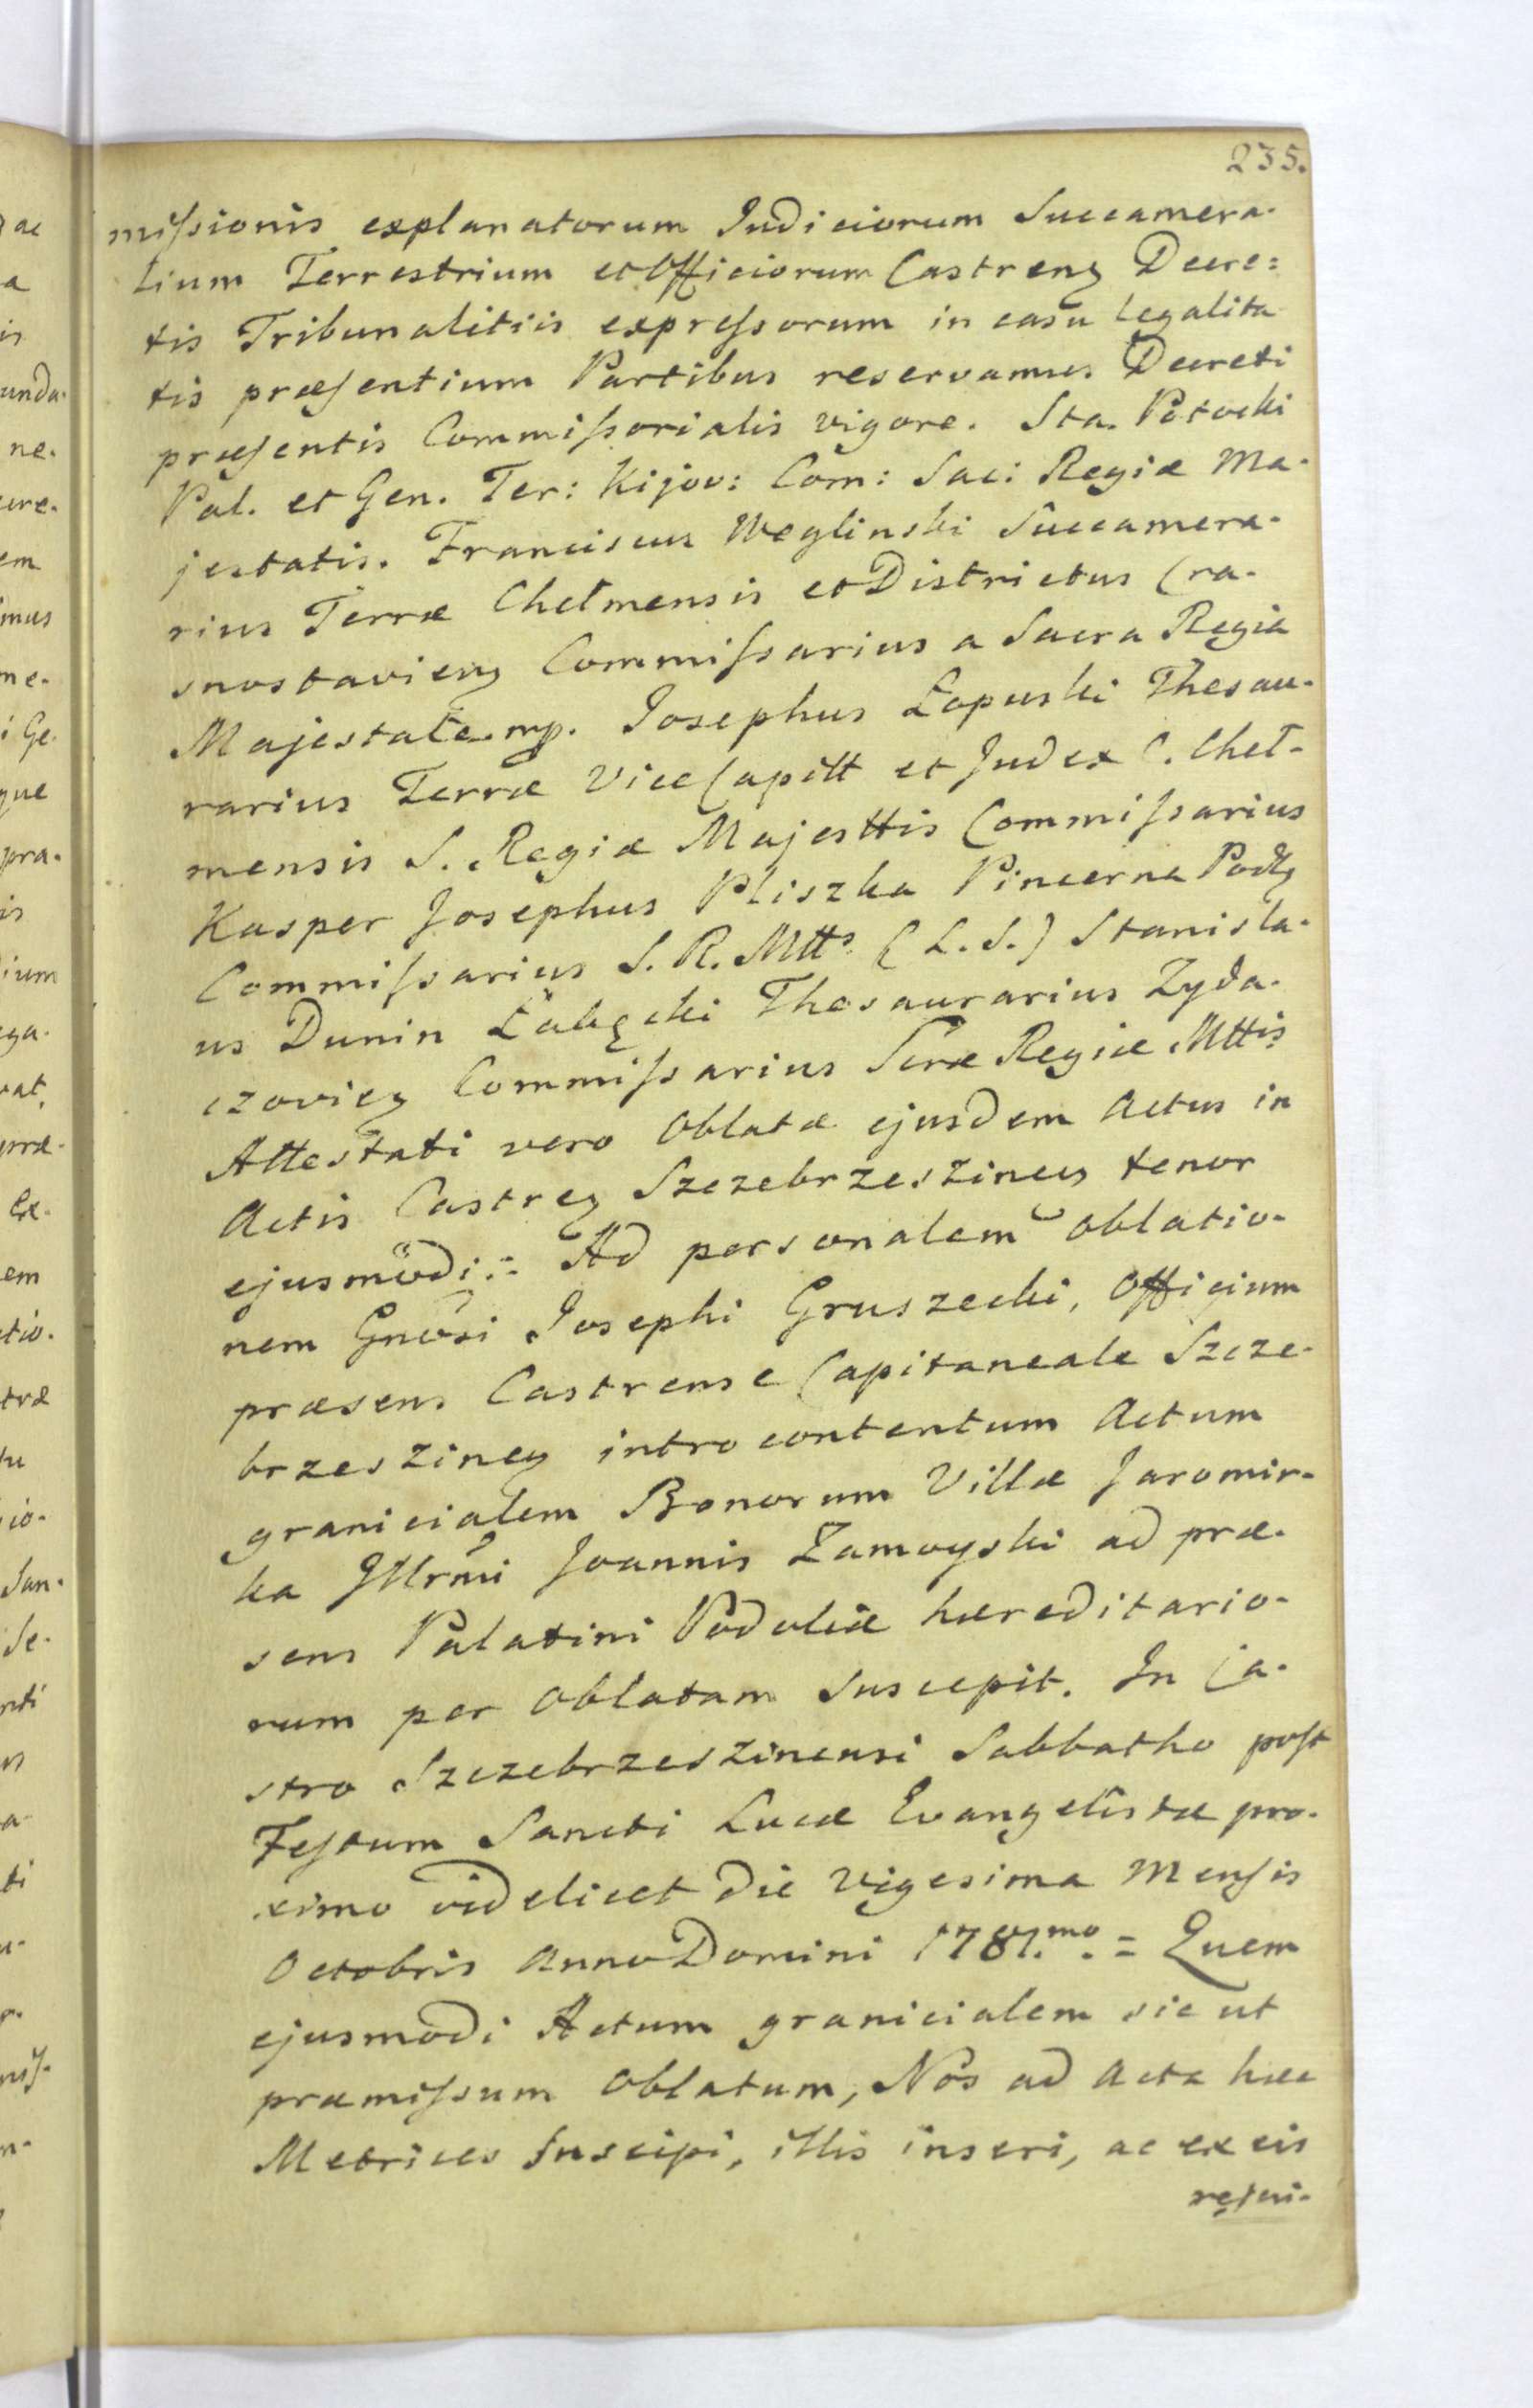 235.
missionis explanatorum Judiciorum Succamera-
lium Terrestrium et Officiorum Castreng Decre=
tis Tribunalitiis expressorum in casu legalita
tis præsentium Partibus reservamus Decreti
præsentis Commissorialis vigore. Sta. Potocki
Pal. et Gen. Ter: Kijov: Com: Sac: Regiæ Ma-
jestatis. Franciscus Weglinski Succamera-
rius Terræ Chelmensis et Districtus Cra-
snostavieng Commissarius a Sacra Regia
Majestate mp. Josephus Łopuski Thesau-
rarius Terræ Vice Capitt et Judex C. Cheł-
mensis S. Regiæ Majesttis Commissarius
Kasper Josephus Pliszka Pincerna
Commissarius S. R. Mtts (L. S.) Stanisla-
us Dunin Łabęcki Thesaurarius Zyda-
czovieg Commissarius Scræ Regiæ Mttis
Attestati vero Oblatæ ejusdem Actus in
Actis Castreg Szczebrzeszineg tenor
ejusmodi:- Ad personalem Oblatio-
nem Gnosi Josephi Gruszecki, Officium
præsens Castrense Capitaneale Szcze-
brzeszineg intro contentum Actum
granicialem Bonorum Villæ Jaromir-
ka Jllrmi Joannis Zamoyski ad præ-
sens Palatini Podoliæ hæreditario-
rum per Oblatam suscepit. In Ca-
stro Szczebrzeszinensi Sabbatho post
Festum Sancti Lucæ Evangelistæ pro-
ximo videlicet die vigesima Mensis
Octobris Anno Domini 1781.mo = Quem
ejusmodi Actum granicialem sic ut
præmissum Oblatum, Nos ad Acta hæc
Metrices Suscipi, illis inseri, ac ex eis